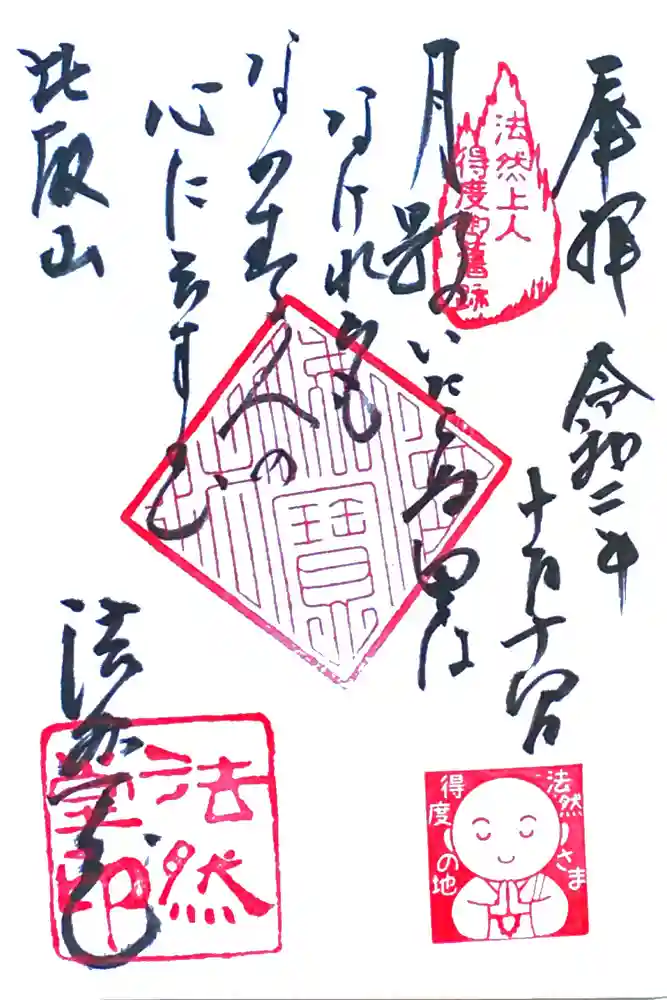 奉拝
令和二年
十一月十六日
法然上人
得度御旧跡
月影のいたらぬ里は
なけれとも
なかむる人の
心にそすむ
比叡山
法然堂
法然
堂印
法然さま
得度の地